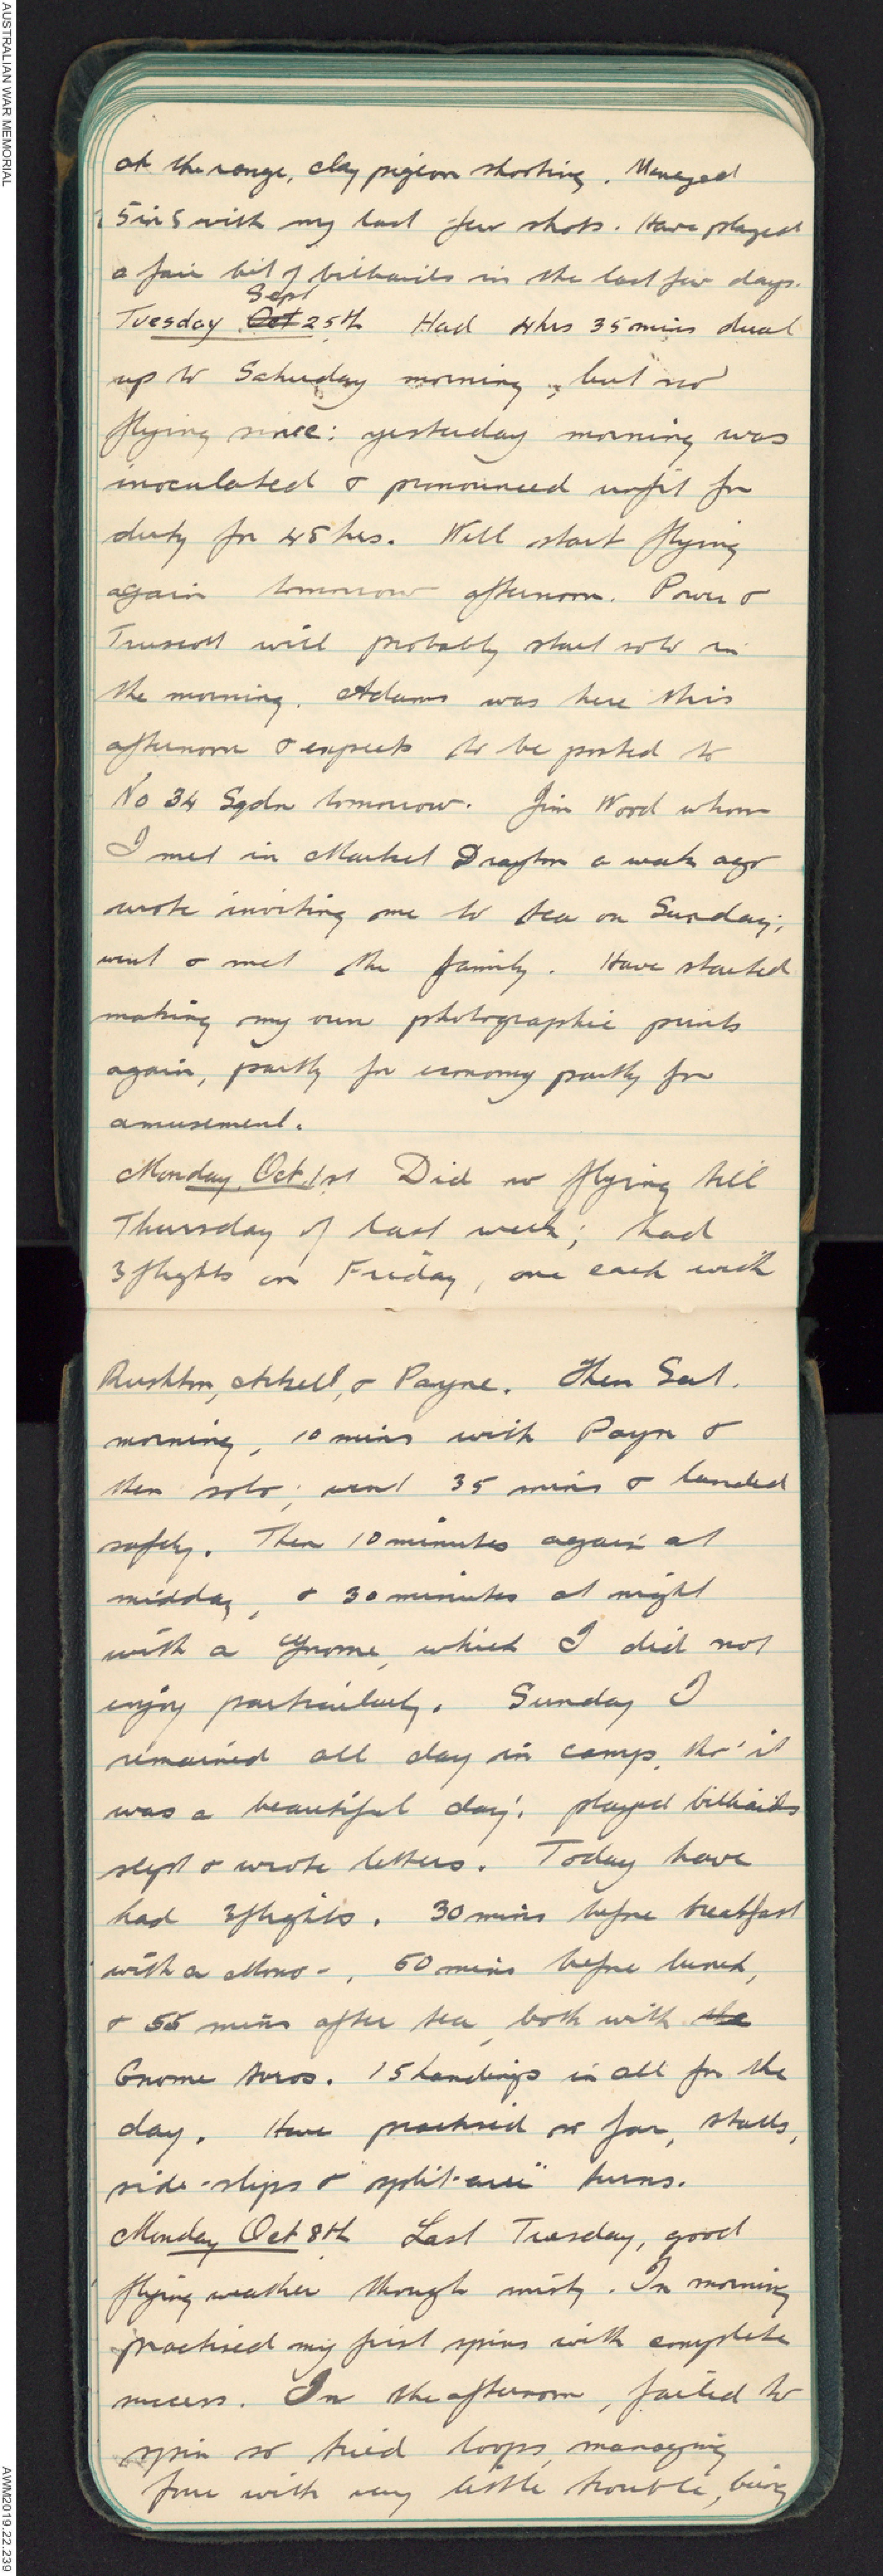 AUSTRALIAN WAR MEMORIAL
at the range, clay pigeon shooting. Managed
5 in 5 with my last few shots. Have played
a fair bit of billiards in the last few days.
Sept
Tuesday Oct 25th Had 4hrs 35mins dual
up to Saturday morning, but no
flying since: yesterday morning was
inoculated & pronounced unfit for
duty for 48 hrs. Will start flying
again tomorrow afternoon. Power &
Truscott will probably start solo in
the morning. Adams was here this
afternoon & expects to be posted to
No 34 Sqdn tomorrow. Jim Wood whom
I met in Market Drayton a week ago
wrote inviting me to tea on Sunday;
went & met the family. Have started
making my own photographic prints
again, partly for economy partly for
amusement.
Monday Oct 1st Did no flying till
Thursday of last week; had
3 flights on Friday, one each with
Rushton, & Payne. Then Sat.
morning, 10 mins with Payn &
then solo; went 35 mins & landed
safely. Then 10 minutes again at
midday, & 30 minutes at night
with a Gnome, which I did not
enjoy particularly. Sunday I
remained all day in camp, tho' it
was a beautiful day; played billiards
slept & wrote letters. Today have
had 3 flights. 30 mins before breakfast
with a Mono-, 50 mins before lunch,
& 55 mins after tea, both with the
Gnome Avros. 15 landings in all for the
day. Have practised so far, stalls,
side-slips & "split-" turns.
Monday Oct 8th Last Tuesday, good
flying weather though misty. In morning
practised my first spins with complete
success. In the afternoon, failed to
spin so tried loops, managing
four with very little trouble, being
AWM2019.22.239